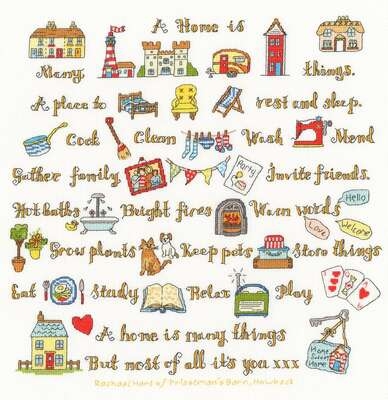 A Home is
Many things.
A place to rest and sleep.
Cook Clean Wash Mend
Gather family Party Invite friends.
Hello
Hot baths Bright fires Warm words
Love Welcome
Grow plants Keep pets Store things
Eat Study Relax Play
A home is many things
Home Sweet Home
But most of all it's you xxx